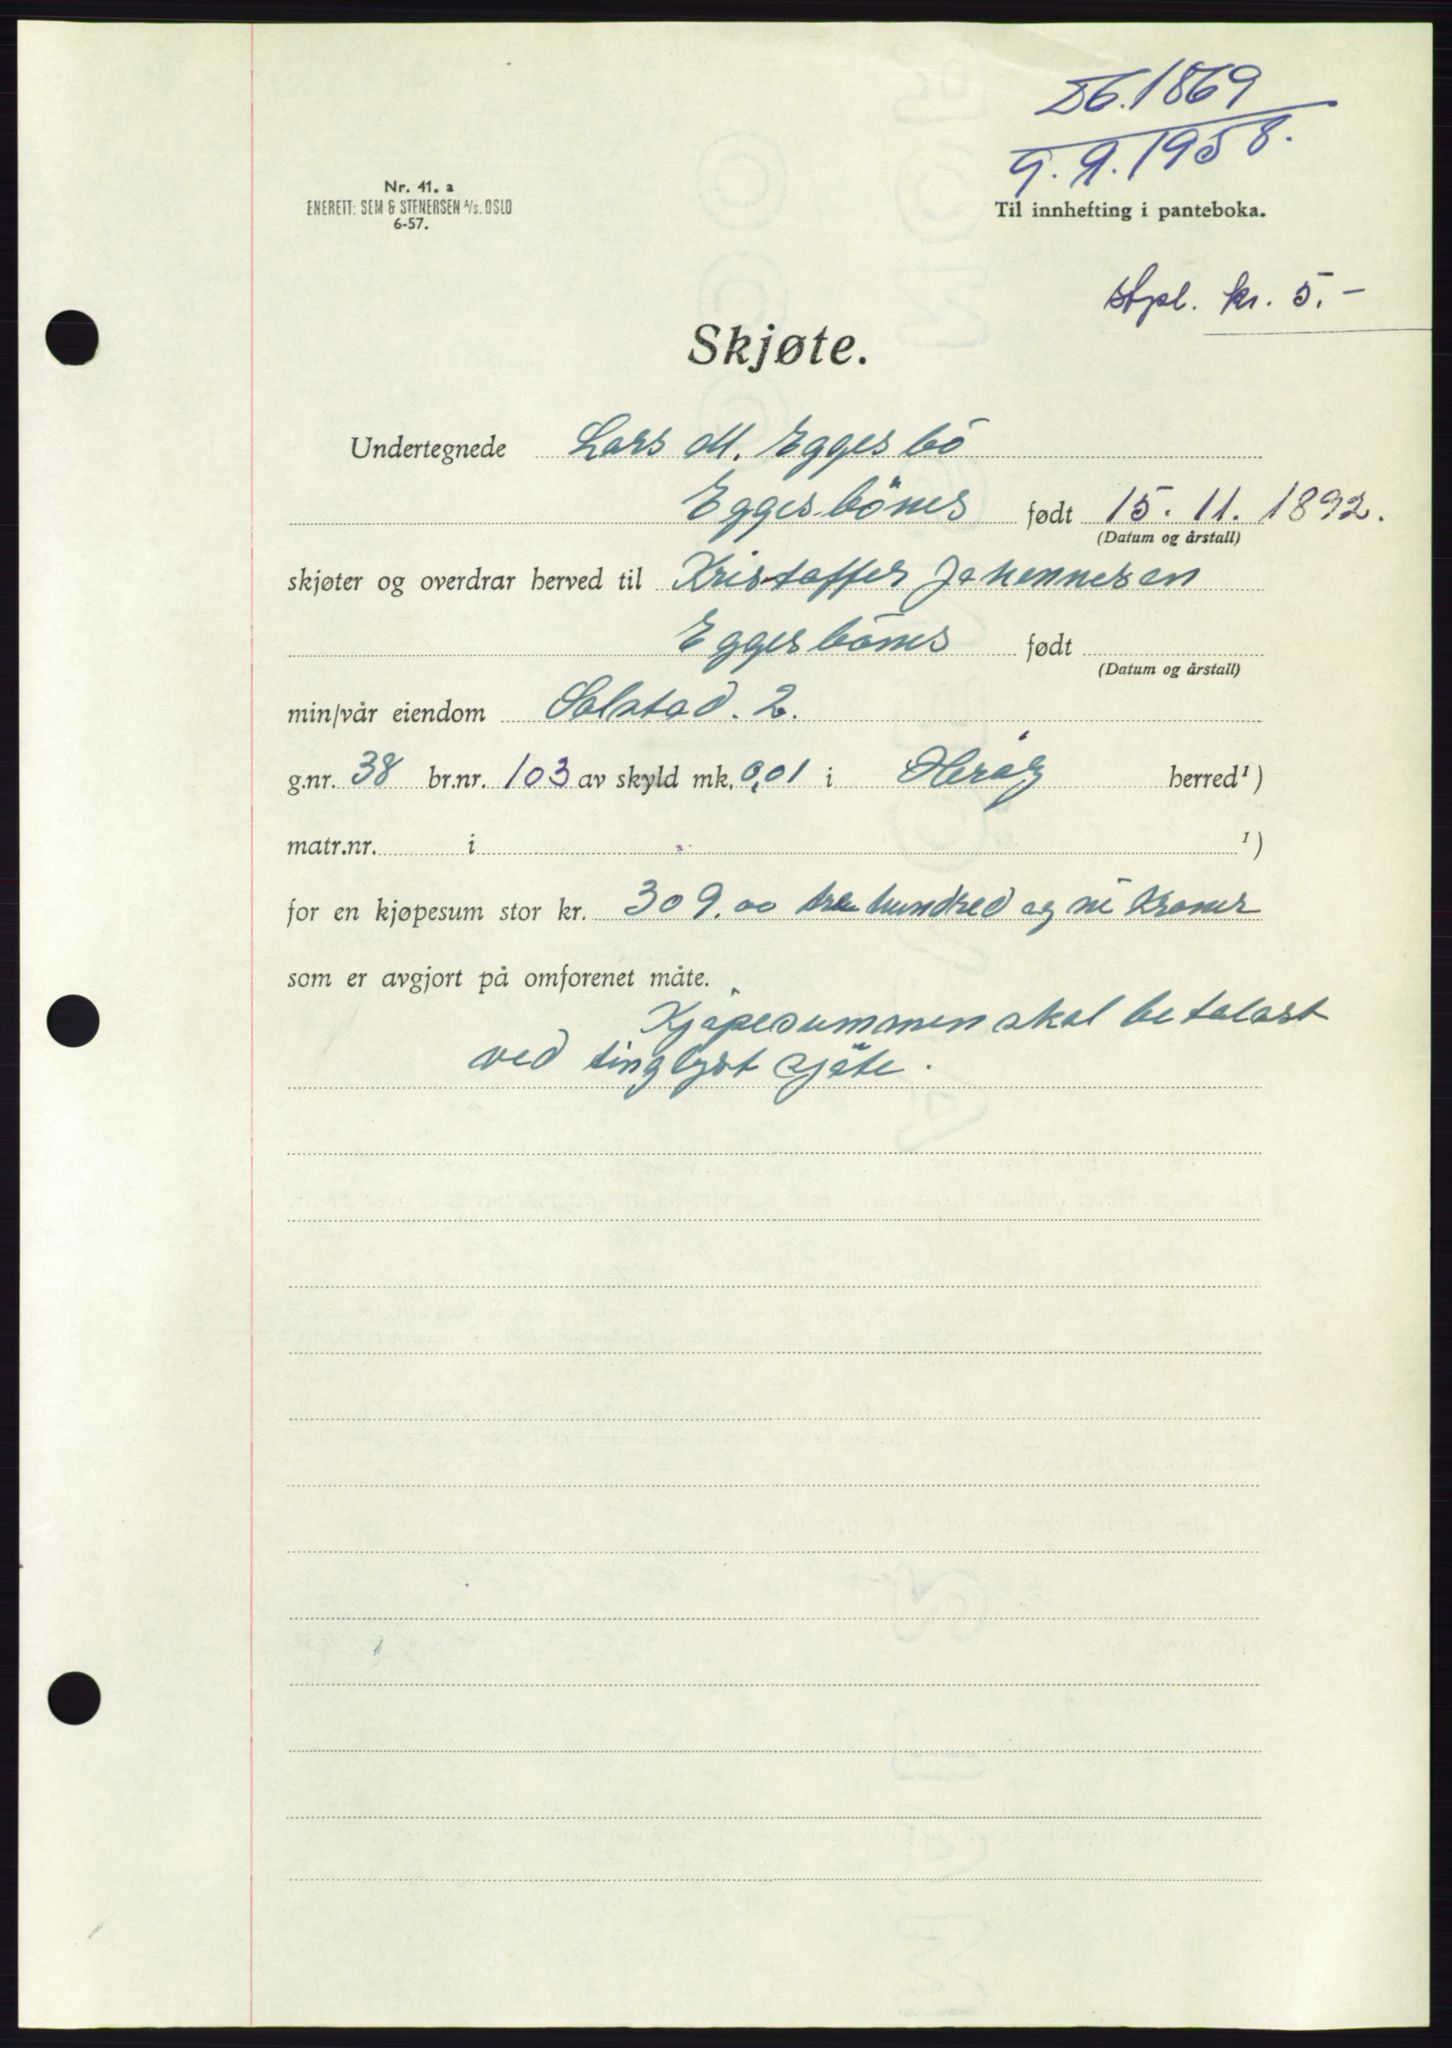 Db. 1869
9.9.1958.
Nr. 41. a
ENERETT: SEM & STENERSEN A/S. OSLO
6-57.
Til innhefting i panteboka.
stpl. kr. 5.-
Skjøte.
Undertegnede Lars M. Eggesbö
Eggesbönes født 15.11.1892.
(Datum og årstall)
skjøter og overdrar herved til Kristoffer Johannesen
Eggesbönes født
(Datum og årstall)
min/vår eiendom Solstad. 2.
g.nr. 38 br.nr. 103 av skyld mk. 0,01 i Heröy herred ¹)
matr.nr. i ¹)
for en kjøpesum stor kr. 309.00 tre hundred og ni Kroner
som er avgjort på omforenet måte.
Kjöpesummen skal betalast
ved tinglyst sjöte.